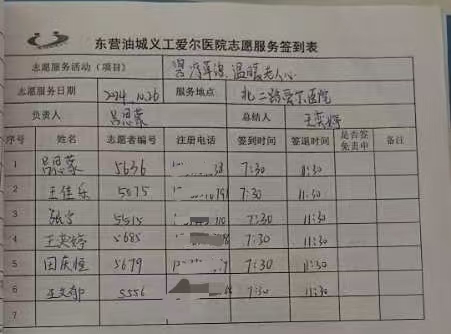 东营油城义工爱尔医院志愿服务签到表
志愿服务活动（项目） 温暖老人心
志愿服务日期 2024.10.26 服务地点 北二路爱尔医院
负责人 吕思蒙 总结人 王奕婷
序号 姓名 志愿者编号 注册电话 签到时间 签退时间 是否签免责申 备注
1 吕思蒙 5636 38 7:30 11:30
2 王佳乐 5875 791 7:30 11:30
3 5515 110 7:30 11:30
4 王奕婷 5685 7:30 11:30
5 田庆恒 5679 7:30 11:30
6 王文郁 5556 7:30 11:30
7